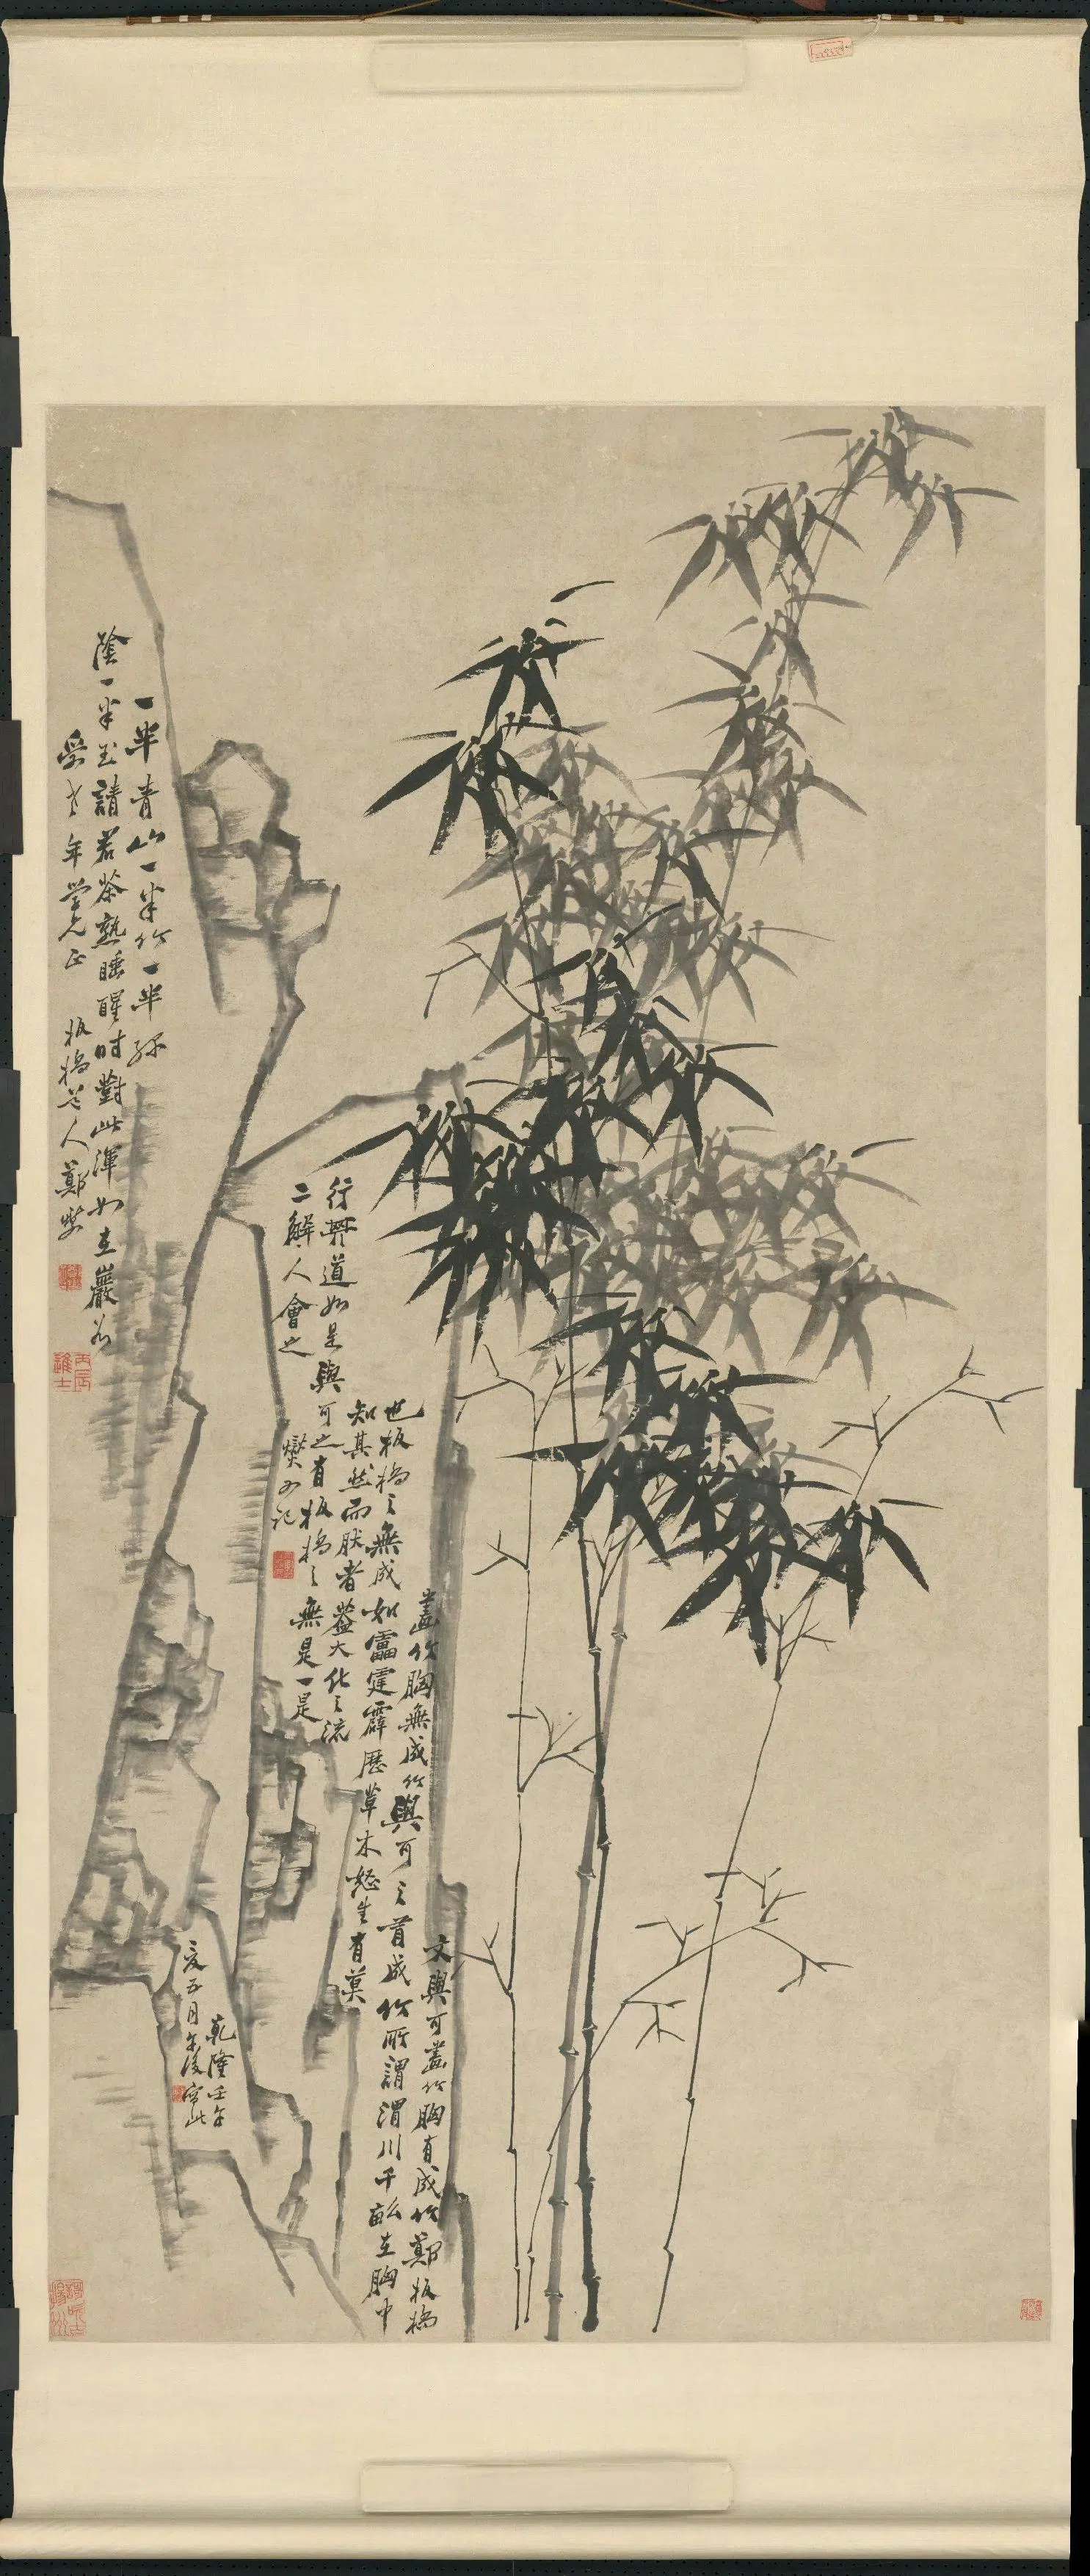 一半青山一半竹一半綠
陰一半玉請君茶熟睡醒時對此渾如在巖谷
年學兄正 板橋老人鄭燮
丙辰進士
文與可畫竹胸有成竹鄭板橋
畫竹胸無成竹與可之有成竹所謂渭川千畝在胸中
也板橋之無成如雷霆霹靂草木怒生有莫
知其然而然者蓋大化之流
行其道如是與可之有板橋之無是一是
二解人會之
燮又記
乾隆壬午
夏五月午後寫此